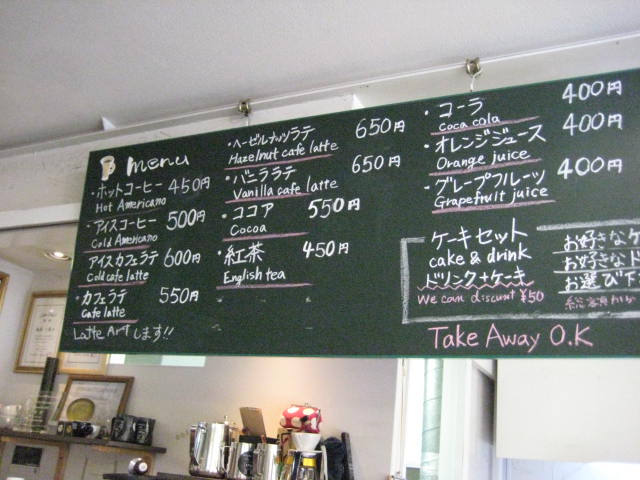 menu
・ホットコーヒー 450円
Hot Americano
・アイスコーヒー 500円
Cold Americano
アイスカフェラテ 600円
Cold cafe latte
・カフェラテ 550円
Cafe latte
Latte Artします!!
・ヘーゼルナッツラテ 650円
Hazelnut cafe latte
・バニララテ 650円
Vanilla cafe latte
・ココア 550円
Cocoa
・紅茶 450円
English tea
・コーラ 400円
Coca cola
・オレンジジュース 400円
Orange juice
・グレープフルーツ 400円
Grapefruit juice
ケーキセット
cake & drink
ドリンク+ケーキ
We can discount ¥50
お好きなケ
お好きなド
お選び下
総額から
Take Away O.K